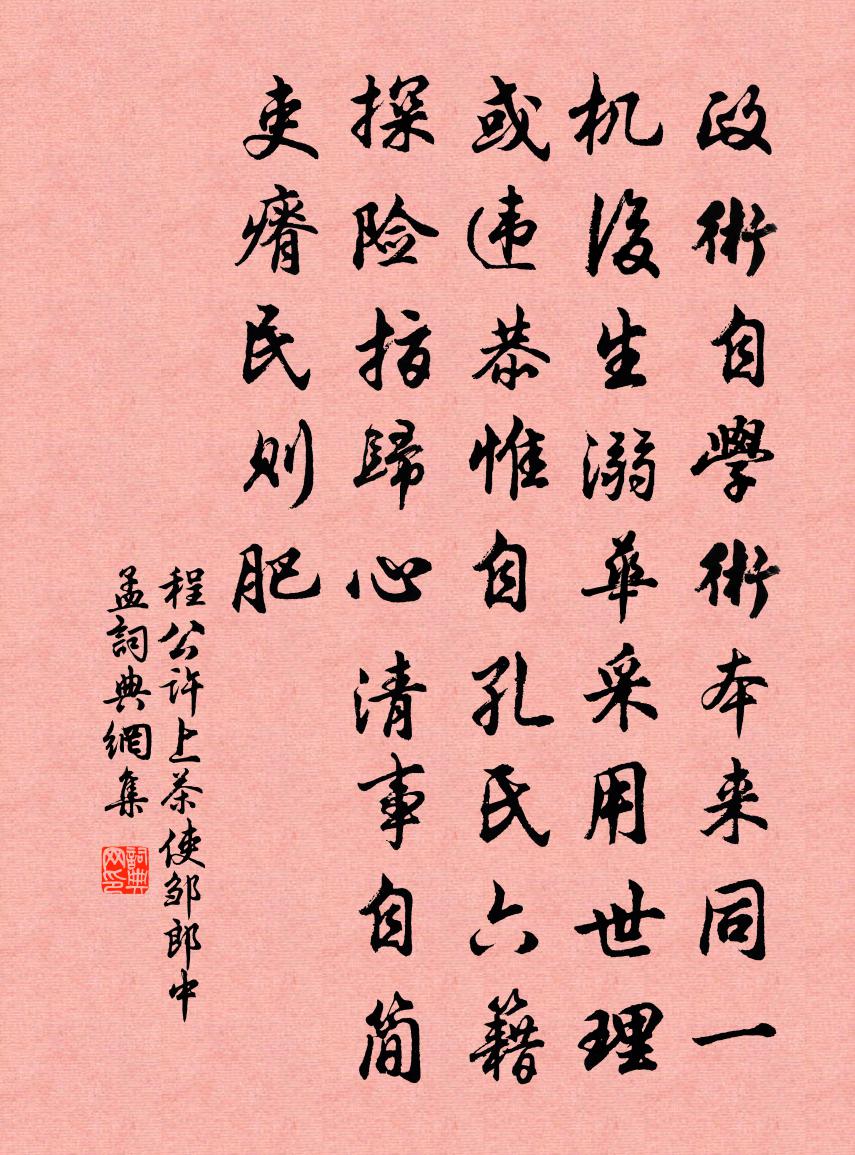 政術自學術本来同一
机後生溺華采用世理
或违恭惟自孔氏六籍
探险指歸心清事自简
吏瘠民则肥
程公许上茶使邹郎中
孟詞典網集
詞典网印